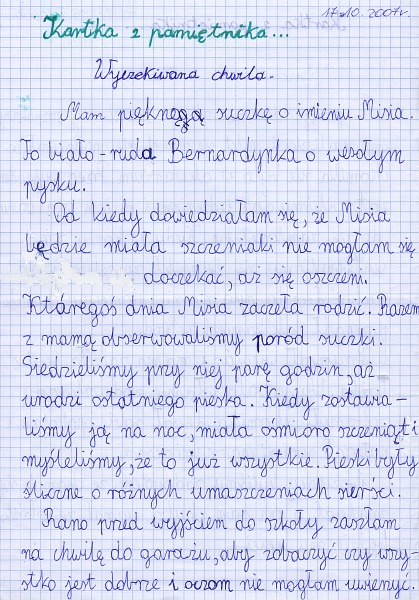 17.10.2007r.
Kartka z pamiętnika...
Wyczekiwana chwila.
Mam piękną suczkę o imieniu Misia.
To biało-ruda Bernardynka o wesołym
pysku.
Od kiedy dowiedziałam się, że Misia
będzie miała szczeniaki nie mogłam się
doczekać, aż się oszczeni.
Któregoś dnia Misia zaczęła rodzić. Razem
z mamą obserwowaliśmy poród suczki.
Siedzieliśmy przy niej parę godzin, aż
urodzi ostatniego pieska. Kiedy zostawia-
liśmy ją na noc, miała ośmioro szczeniąt i
myśleliśmy, że to już wszystkie. Pieski były
śliczne o różnych umaszczeniach sierści.
Rano przed wyjściem do szkoły zaszłam
na chwilę do garażu, aby zobaczyć czy wszy-
stko jest dobrze i oczom nie mogłam uwierzyć.